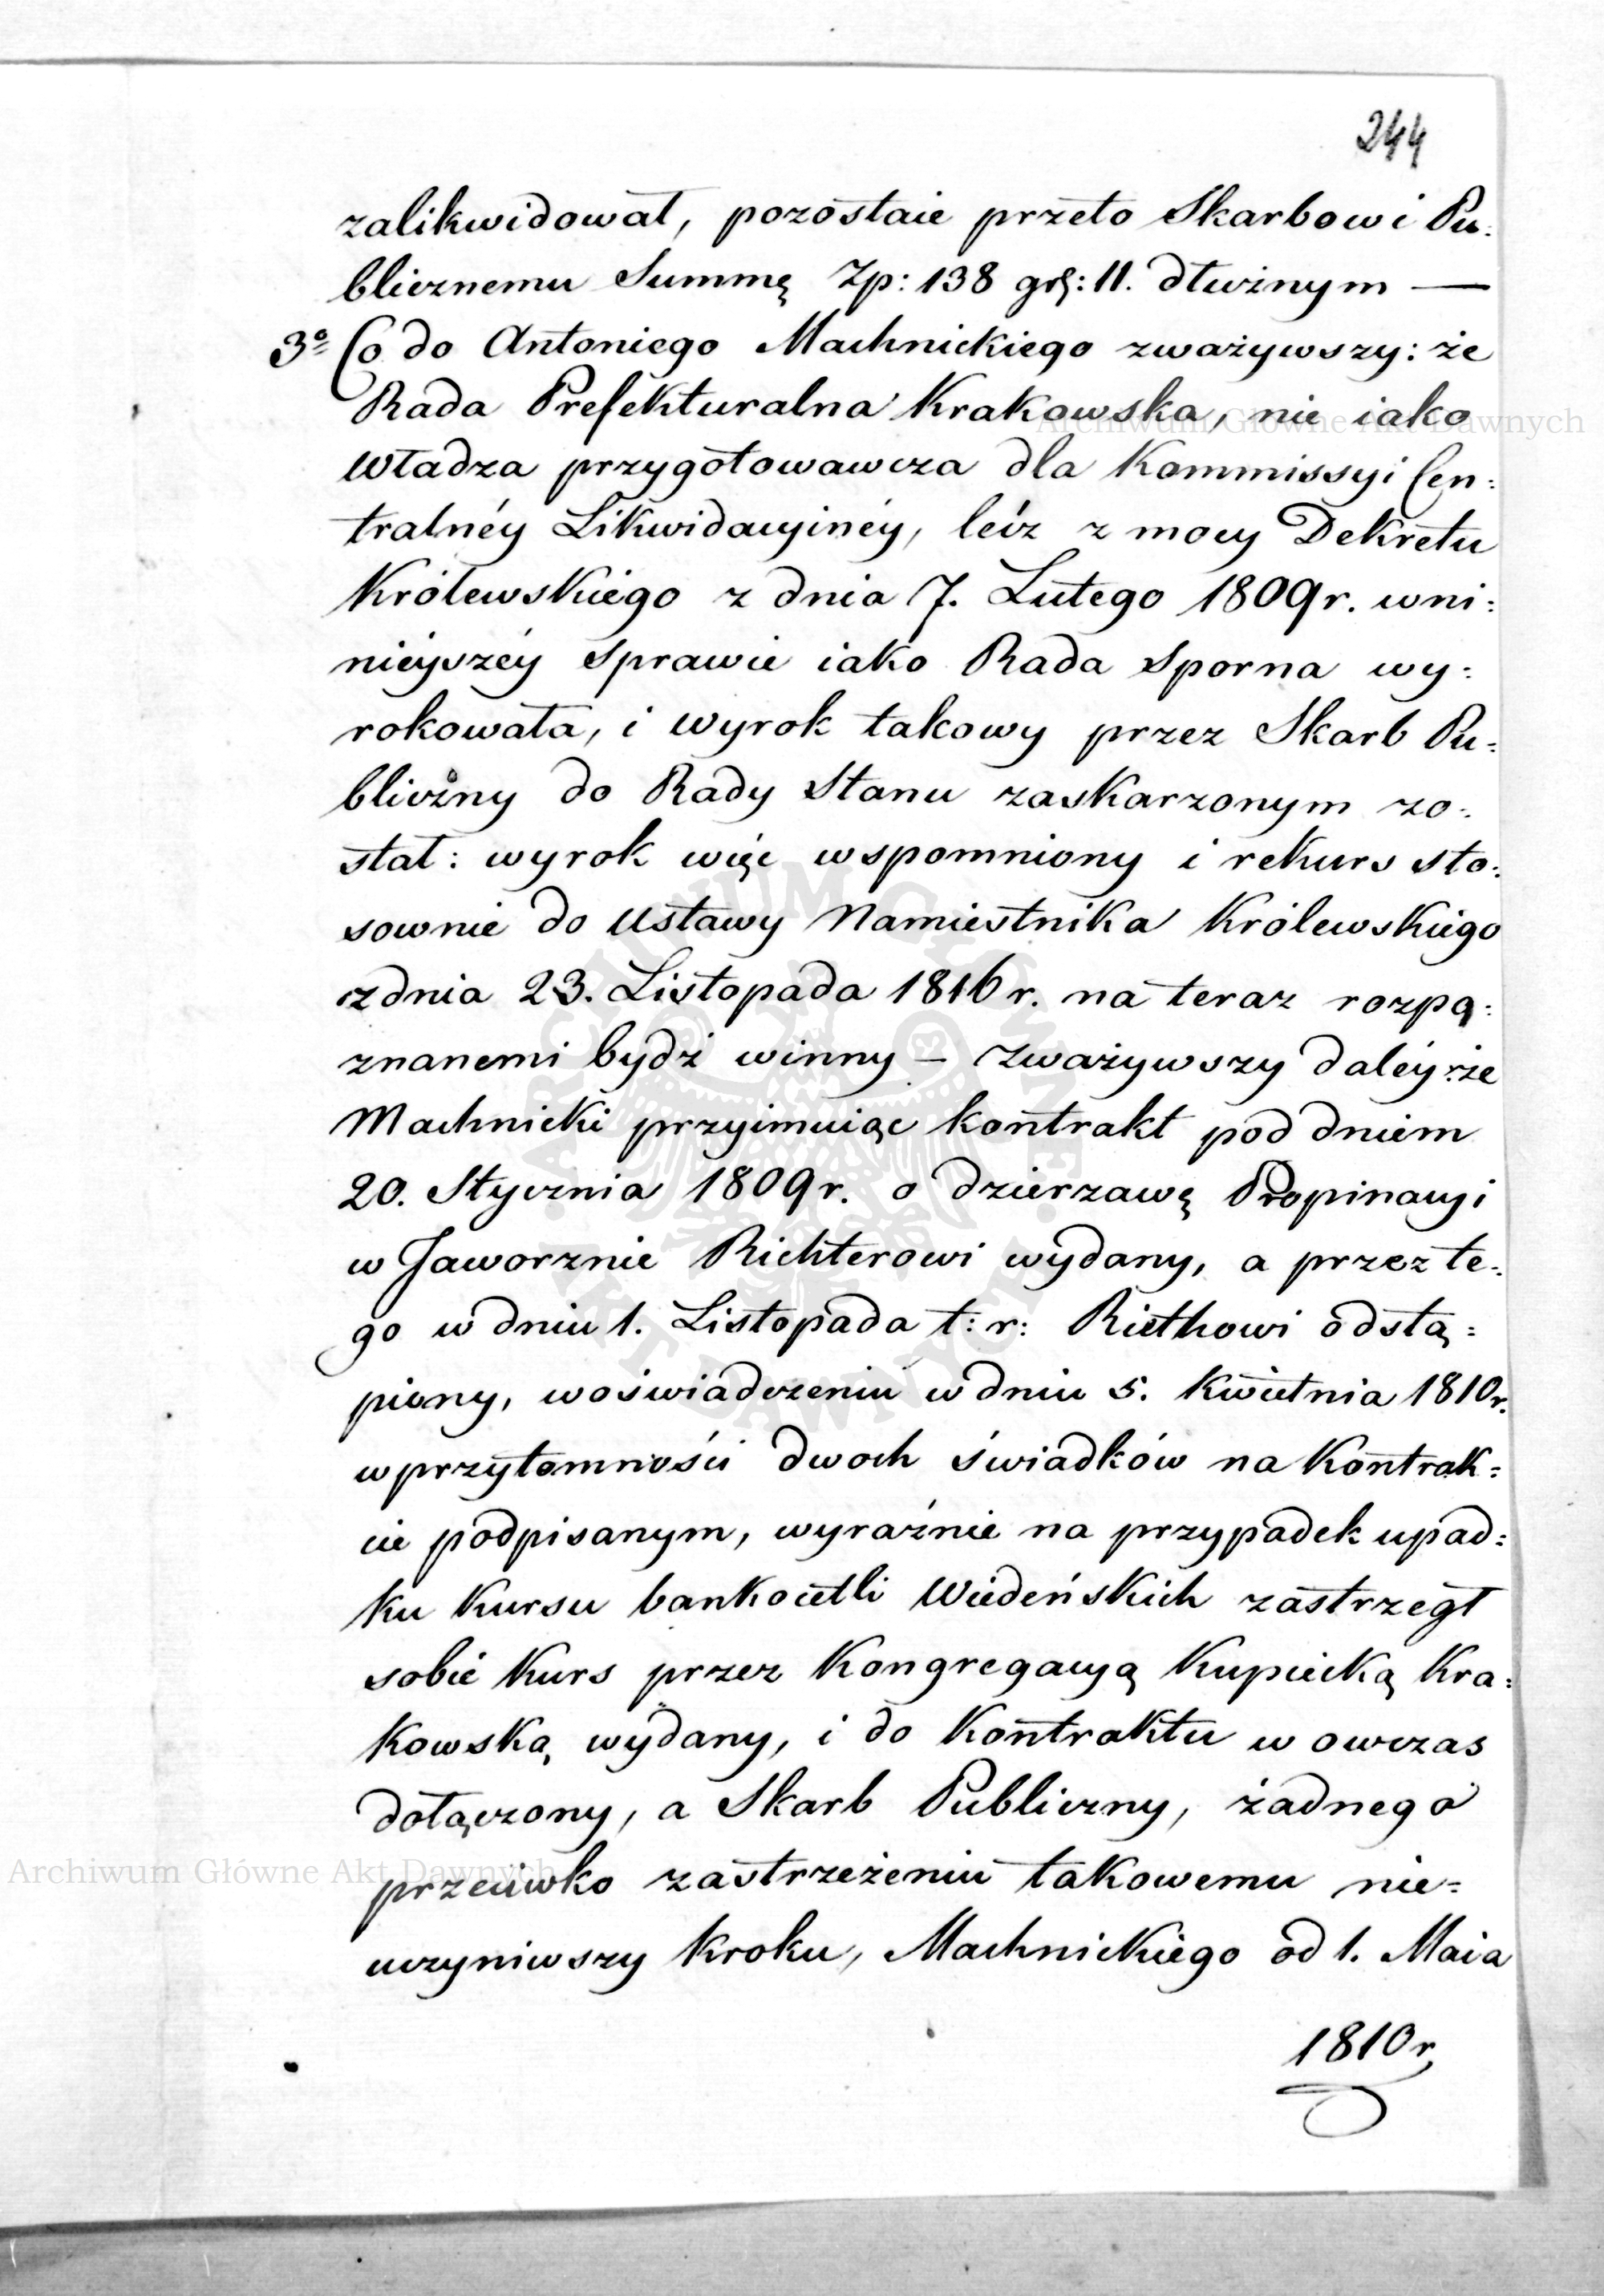 244
zalikwidował, pozostaie przeto Skarbowi Pu:
blicznemu Summę Zp: 138 grs: 11. dłużnym —
3º Co do Antoniego Machnickiego zważywszy: że
Rada Prefekturalna Krakowska, nie iako
Władza przygotowawcza dla Kommissyi Cen:
tralnéy Likwidacyinéy, lecz z mocy Dekretu
Królewskiego z dnia 7. Lutego 1809 r. w ni:
nieyszéy sprawie iako Rada Sporna wy:
rokowała, i wyrok takowy przez Skarb Pu:
bliczny do Rady Stanu zaskarzonym zo:
stał: wyrok więc wspomniony i rekurs sto:
sownie do Ustawy Namiestnika Królewskiego
z dnia 23. Listopada 1816 r. na teraz rozpo:
znanemi bydź winny – Zważywszy daléy: że
Machnicki przyimuiąc kontrakt pod dniem
20. Stycznia 1809 r. o dzierzawę Propinacyi
w Jaworznie Richterowi wydany, a przez te:
go w dniu 1. Listopada t: r: Riethowi odstą:
piony, w oświadczeniu w dniu 5. Kwietnia 1810 r.
w przytomności dwoch świadków na Kontrak:
cie podpisanym, wyraźnie na przypadek upad:
ku Kursu bankocetli Wiedeńskich zastrzegł
sobie Kurs przez Kongregacyą Kupiecką Kra:
kowską wydany, i do Kontraktu w owczas
dołączony, a Skarb Publiczny, żadnego
przeciwko zastrzeżeniu takowemu nie:
uczyniwszy kroku, Machnickiego od 1. Maia
1810 r.
Archiwum Główne Akt Dawnych
Archiwum Główne Akt Dawnych
ARCHIWUM GŁÓWNE
AKT DAWNYCH